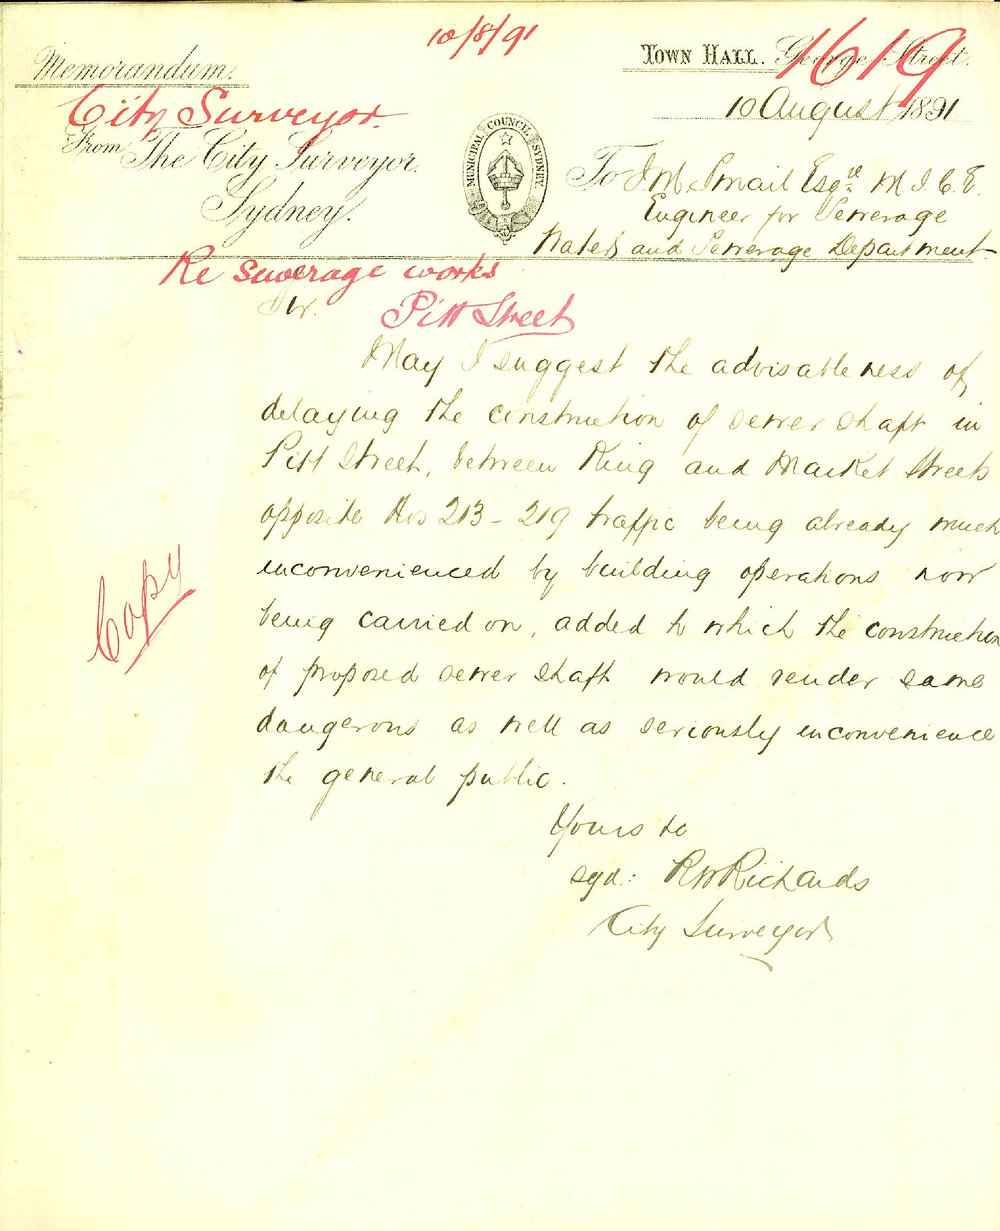 10/8/91
1619
Memorandum.
TOWN HALL. George Street.
City Surveyor.
10 August 1891
From The City Surveyor.
Sydney.
MUNICIPAL COUNCIL SYDNEY.
To J. M. Smail Esqre M. I. C. E.
Engineer for Sewerage
Water and Sewerage Department
Re sewerage works
Pitt Street
Sir.
May I suggest the advisableness of
delaying the construction of sewer shaft in
Pitt Street, between King and Market Streets
opposite Nos 213 - 219 traffic being already much
inconvenienced by building operations now
being carried on, added to which the construction
of proposed sewer shaft would render same
dangerous as well as seriously inconvenience
the general public.
Copy
Yours &c
sgd: R W Richards
City Surveyor